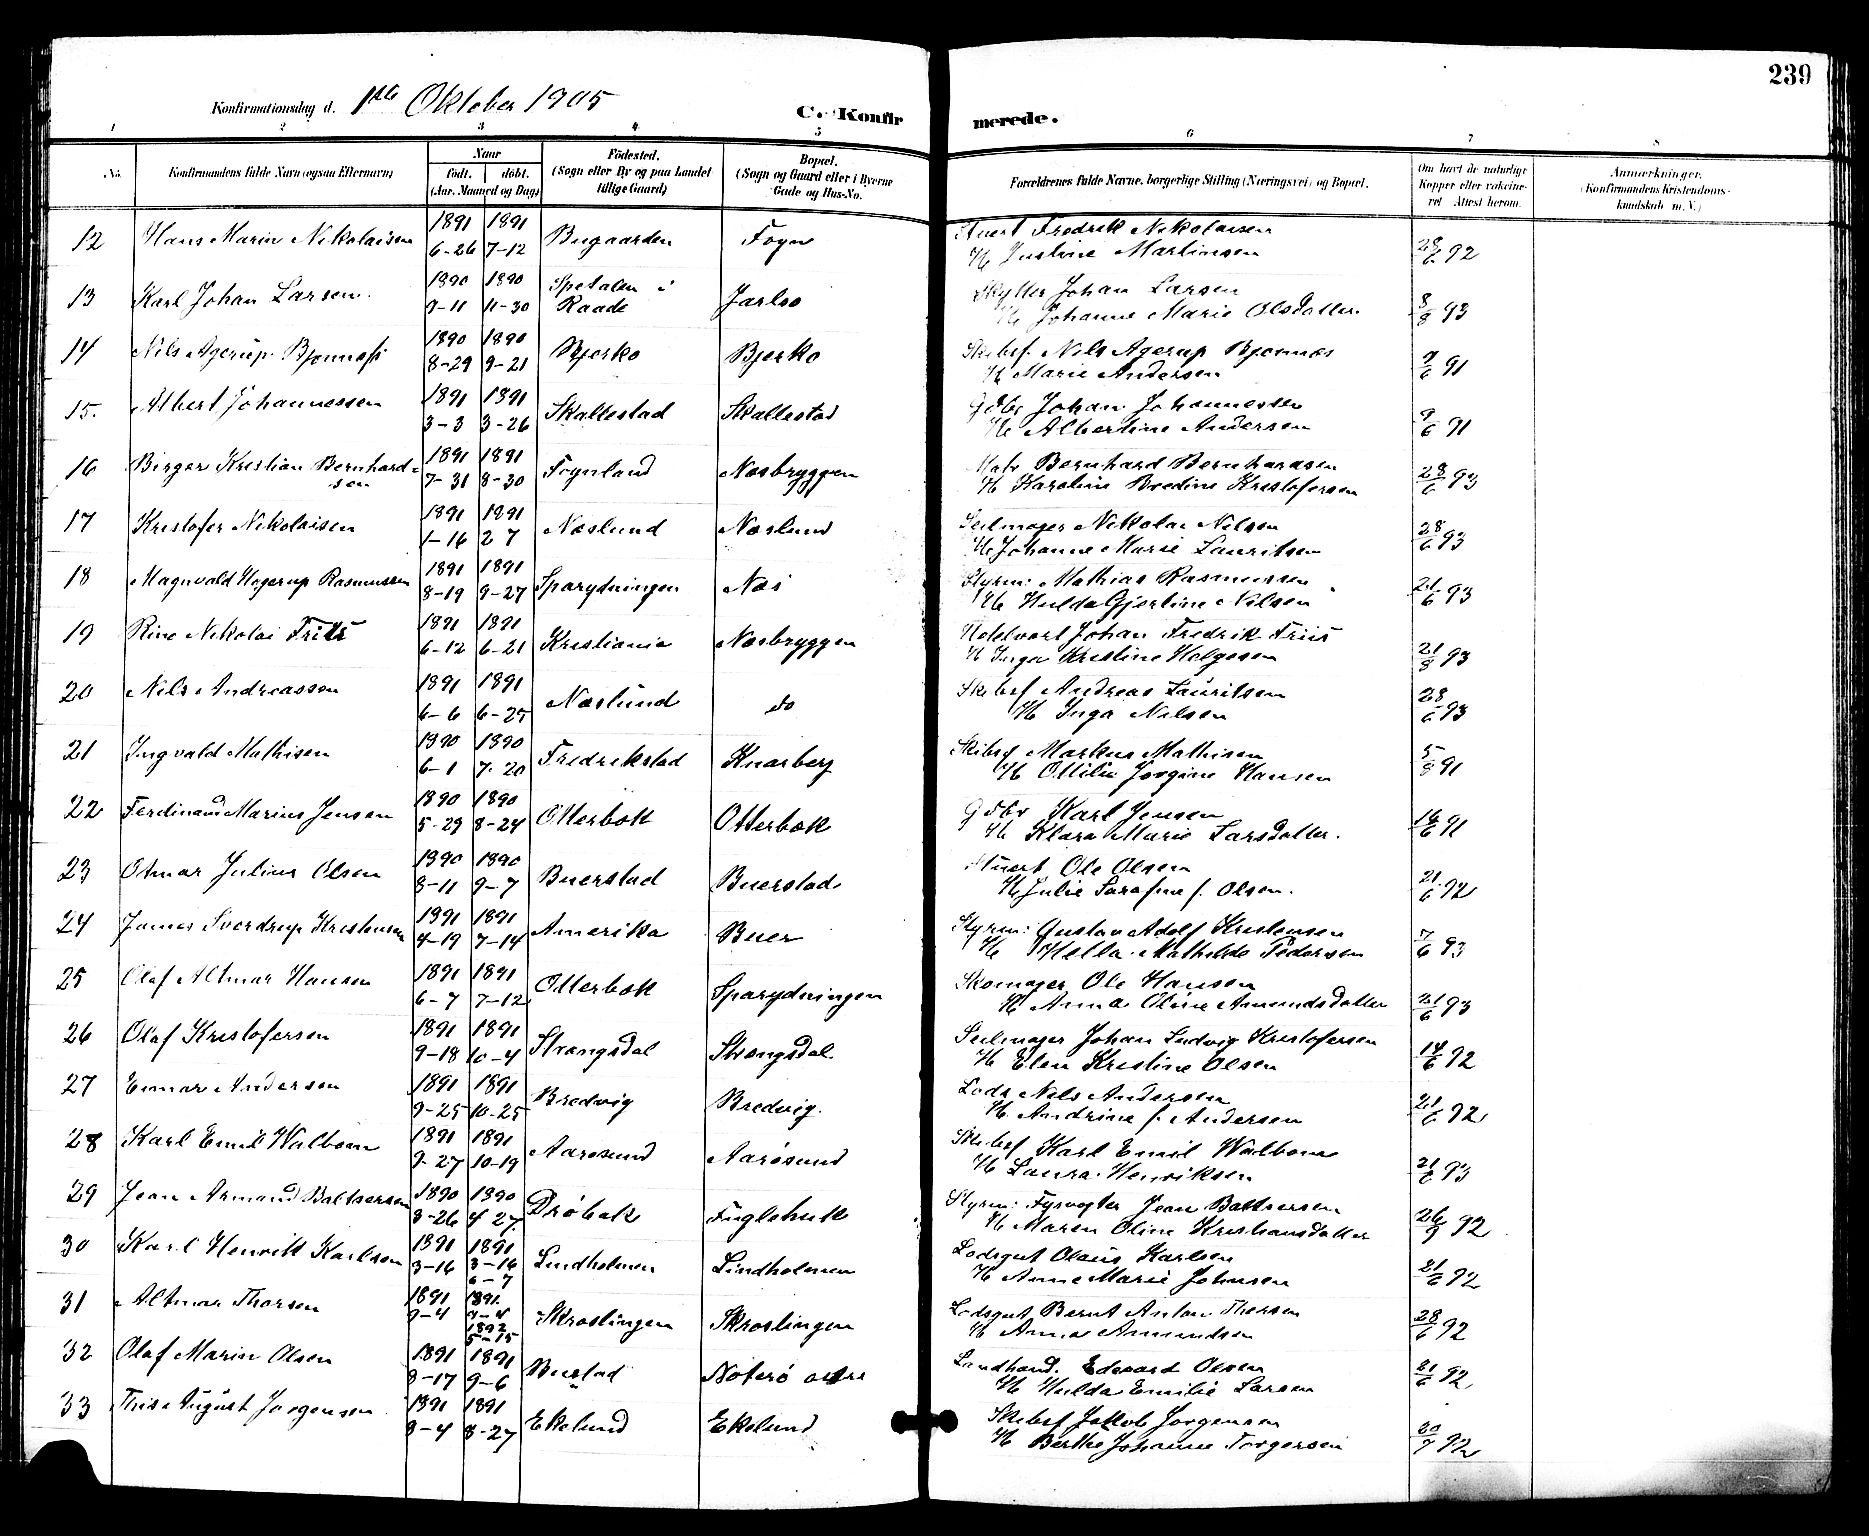 239
Konfirmationsdag d. 1ste Oktober 1905
C. Konfir merede.
1 2 3 4 5 6 7 8
No. Konfirmandens fulde Navn (ogsaa Efternavn) Naar födt. döbt. (Aar. Maaned og Dag) Födested. (Sogn eller By og paa Landet tillige Gaard) Bopæl. (Sogn og Gaard eller i Byerne Gade og Hus-No. Forældrenes fulde Navne, borgerlige Stilling (Næringsvei) og Bopæl. Om havt de naturlige Kopper eller vakcineret Attest herom. Anmærkninger. (Konfirmandens Kristendomskundskab m. V.)
12 Hans Marin Nikolaisen 1891 6-26 1891 7-12 Bugaarden Fogn Stuert Fredrik Nikolaisen
H Justine Martinsen 28/6 92
13 Karl Johan Larsen 1890 9-11 1890 11-30 Spetalen i Raade Jarlsø Skytter Johan Larsen
H Johanne Marie Olsdatter 8/8 93
14 Nils Agerup Bjonness 1890 8-29 1890 9-21 Bjerko Bjerko Skibsf. Nils Agerup Bjonnes
H Marie Andersen 9/6 91
15. Albert Johannessen 1891 3-3 1891 3-26 Skallestad Skallestad Gdbr Johan Johannessen
H Albertine Andersen 9/6 91
16 Birger Kristian Bernhardsen 1891 7-31 1891 8-30 Fognland Næsbryggen Matr Bernhard Bernhardsen
H Karoline Bredine Kristofersen 28/6 93
17 Kristofer Nikolaisen 1891 1-16 1891 2 7 Næslund Næslund Seilmager Nikolai Nilsen
H Johanne Marie Lauritsen 28/6 93
18 Magnvald Hagerup Rasmussen 1891 8-19 1891 9-27 Sparydningen Næs Styrm: Mathias Rasmussen
H Hulda Gjertine Nilsen 21/6 93
19 Rino Nikolai Friis 1891 6-12 1891 6-21 Kristiania Næsbryggen Hotelvært Johan Fredrik Friis
H Inga Kristine Helgesen 21/8 93
20 Nils Andreassen 1891 6-6 1891 6-25 Næslund do Skibsf Andreas Lauritsen
H Inga Nilsen 28/6 93
21 Ingvald Mathisen 1890 6-1 1890 7-20 Fredrikstad Knarberg Skibsf Markus Mathisen
H Ottilie Jorgine Hansen 5/8 91
22 Ferdinand Marius Jensen 1890 5-29 1890 8-24 Otterbek Otterbek Gdbr Karl Jensen
H Klara Marie Larsdatter. 14/6 91
23 Otmar Julius Olsen 1890 8-11 1890 9-7 Buerstad Buerstad Stuert Ole Olsen
H Julie Sarafine f. Olsen. 21/6 92
24 James Sverdrup Kristensen 1891 4-19 1891 7-14 Amerika Buer Styrm: Gustav Adolf Kristensen
H Hella Mathilde Pedersen 7/6 93
25 Olaf Altmar Hansen 1891 6-7 1891 7-12 Otterbek Sparydningen Skomager Ole Hansen
H Anna Oline Amundsdatter 21/6 93
26 Olaf Kristofersen 1891 9-18 1891 10-4 Strangsdal Strangsdal. Seilmager Johan Ludvig Kristofersen
H Elen Kristine Olsen 14/6 92
27 Einar Andersen 1891 9-25 1891 10-25 Bredvig Bredvig. Lods Nils Andersen
H Andrine f. Andersen 21/6 92
28 Karl Emil Walbom 1891 9-27 1891 10-19 Aarøsund Aarøsund Skibsf Karl Emil Walbom
H Laura Henriksen 21/6 93
29 Jean Armand Baltsersen 1890 3-26 1890 4 27. Drøbak Fuglehuk Styrm: Fyrvogter Jean Baltsersen
H Maren Oline Kristiansdatter 26/9 92
30 Karl Henrik Karlsen 1891 3-16 1891 3-16 6-7 Lindholmen Lindholmen Lodsgut Olaus Karlsen
H Anne Marie Johnsen 21/6 92
31 Altmar Thorsen 1891 9-4 1891. 9-4 1892 5-15 Skroslingen Skroslingen Lodsgut Bernt Anton Thorsen
H Anna Amundsen 28/6 92
32 Olaf Marin Olsen 1891 8-17 1891 9-6 Bustad Nøterø østre Landhand. Edevard Olsen
H Hulda Emilie Larsen 21/6 92
33 Thris August Jorgensen 1891 8-4 1891 8-27 Ekelund Ekelund Skibsf Jakob Jorgensen
H Berthe Johanne Torgersen 20/7 92